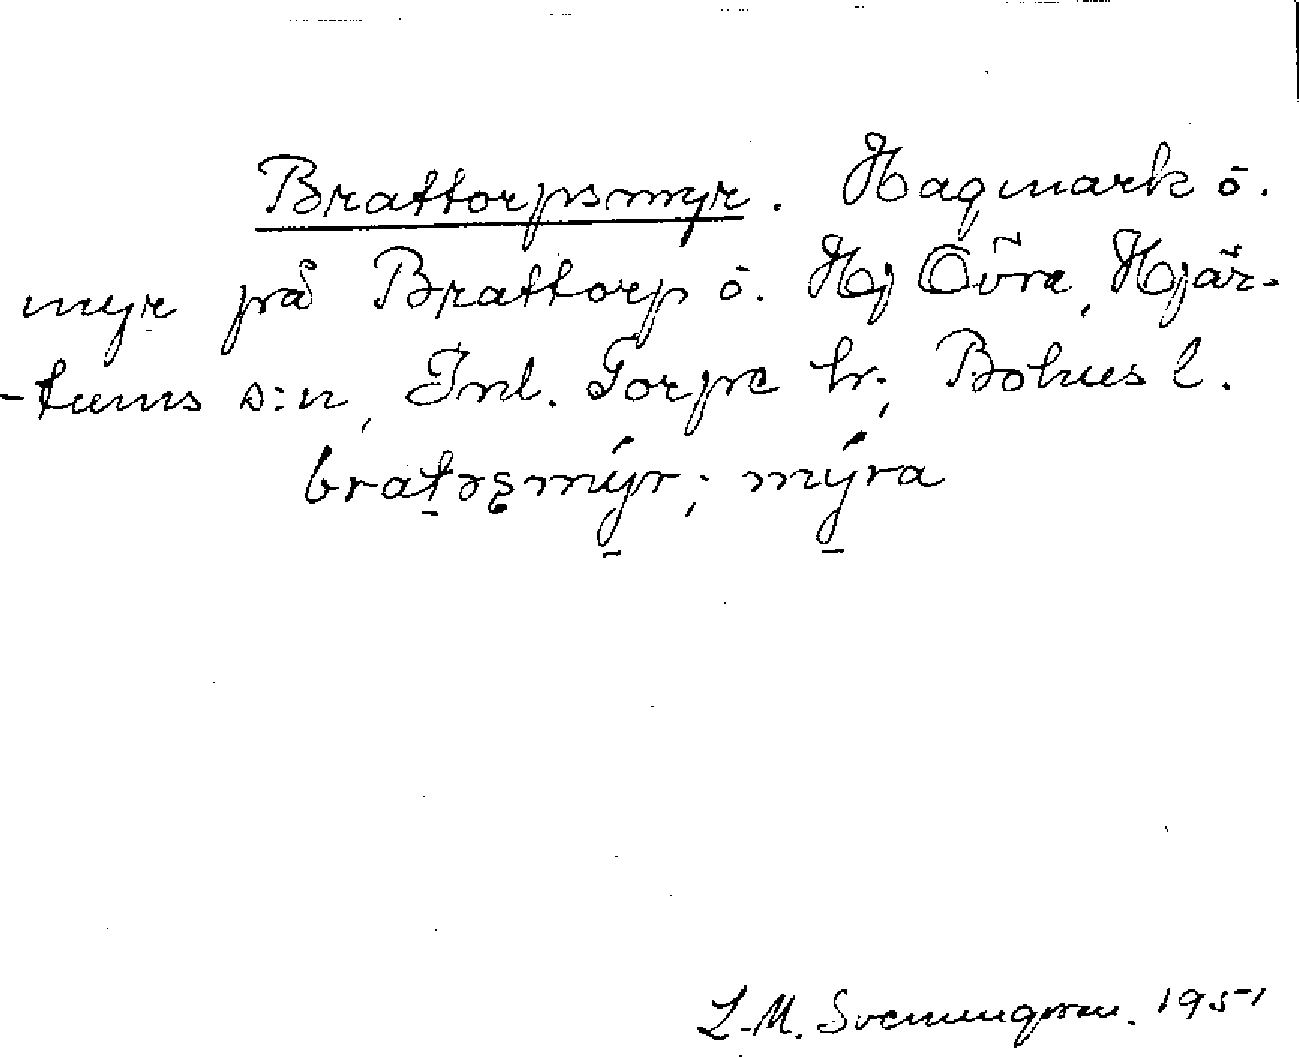 Brattorpsmyr. Hagmark o.
myr på Brattorp o. Hj Övre, Hjär-
-tums s:n, Inl. Torpe hr, Bohus l.
mýra
L. M. Svenungsson. 1951